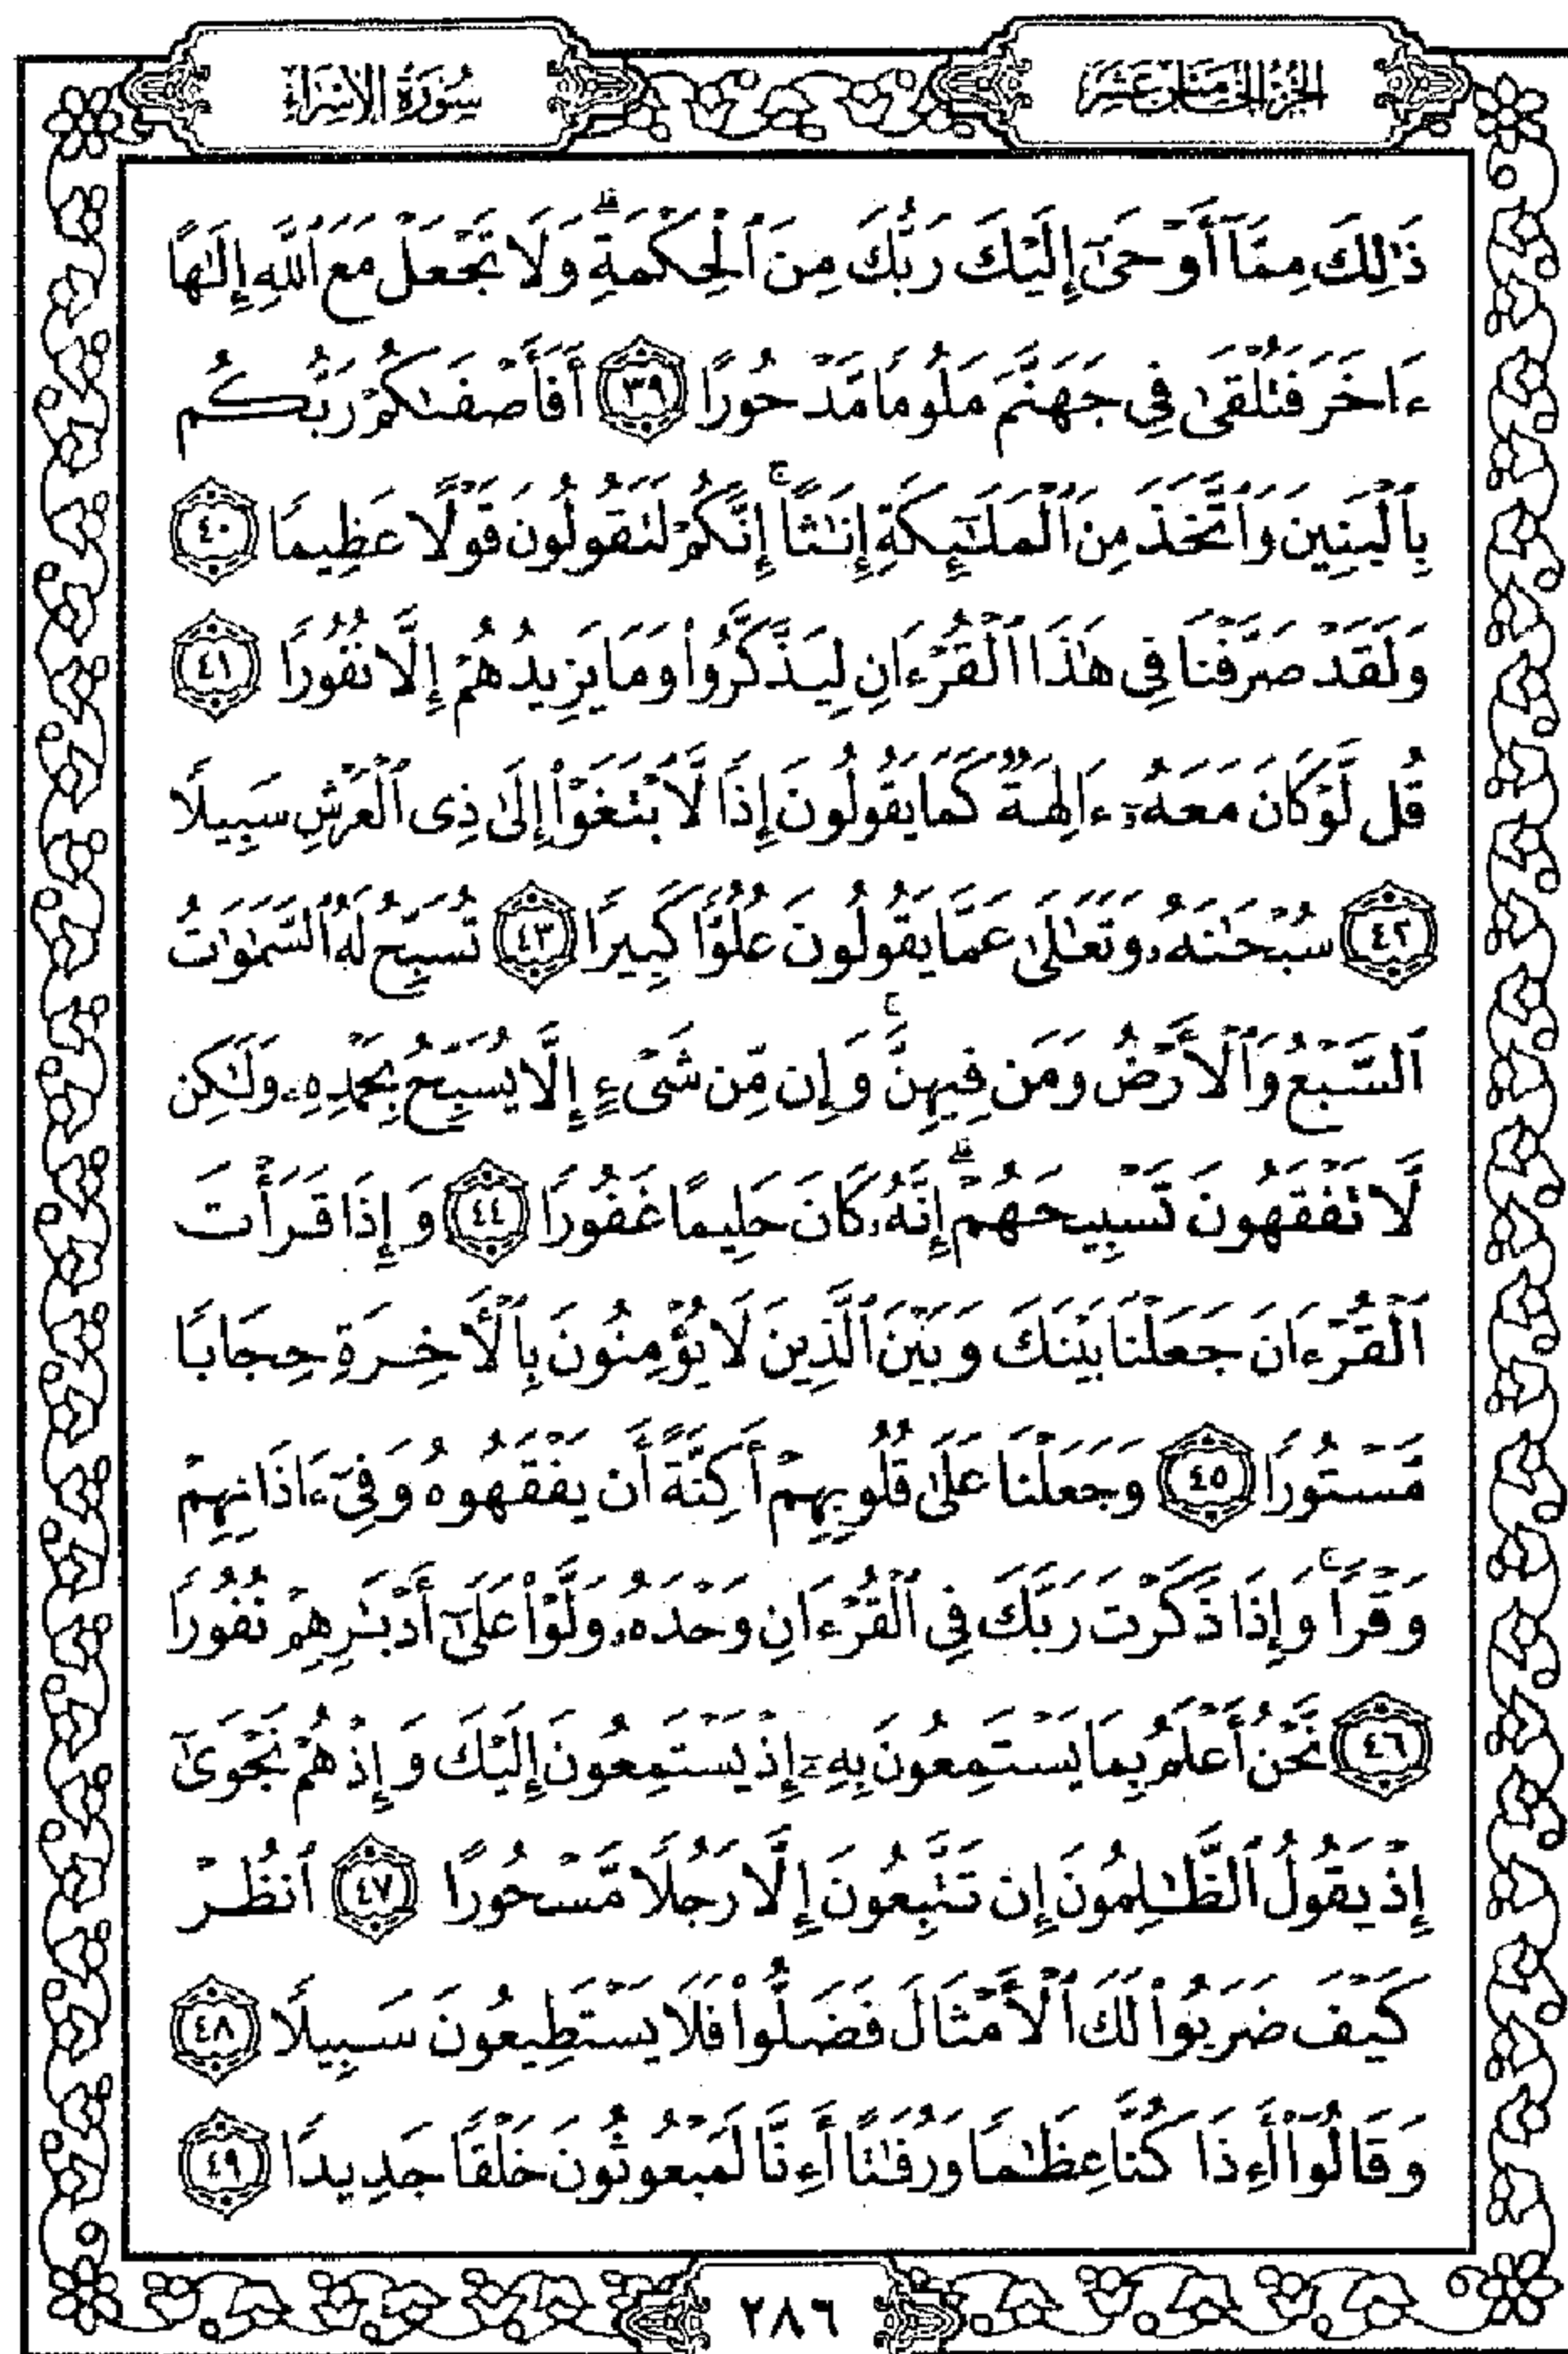 الجزء الخامس عشر
سورة الإسراء
ذَٰلِكَ مِمَّآ أَوْحَىٰٓ إِلَيْكَ رَبُّكَ مِنَ ٱلْحِكْمَةِ ۗ وَلَا تَجْعَلْ مَعَ ٱللَّهِ إِلَٰهًا
ءَاخَرَ فَتُلْقَىٰ فِى جَهَنَّمَ مَلُومًا مَّدْحُورًا ٣٩ أَفَأَصْفَىٰكُمْ رَبُّكُم
بِٱلْبَنِينَ وَٱتَّخَذَ مِنَ ٱلْمَلَٰٓئِكَةِ إِنَٰثًا ۚ إِنَّكُمْ لَتَقُولُونَ قَوْلًا عَظِيمًا ٤٠
وَلَقَدْ صَرَّفْنَا فِى هَٰذَا ٱلْقُرْءَانِ لِيَذَّكَّرُوا۟ وَمَا يَزِيدُهُمْ إِلَّا نُفُورًا ٤١
قُل لَّوْ كَانَ مَعَهُۥٓ ءَالِهَةٌ كَمَا يَقُولُونَ إِذًا لَّٱبْتَغَوْا۟ إِلَىٰ ذِى ٱلْعَرْشِ سَبِيلًا
٤٢ سُبْحَٰنَهُۥ وَتَعَٰلَىٰ عَمَّا يَقُولُونَ عُلُوًّا كَبِيرًا ٤٣ تُسَبِّحُ لَهُ ٱلسَّمَٰوَٰتُ
ٱلسَّبْعُ وَٱلْأَرْضُ وَمَن فِيهِنَّ ۚ وَإِن مِّن شَىْءٍ إِلَّا يُسَبِّحُ بِحَمْدِهِۦ وَلَٰكِن
لَّا تَفْقَهُونَ تَسْبِيحَهُمْ ۗ إِنَّهُۥ كَانَ حَلِيمًا غَفُورًا ٤٤ وَإِذَا قَرَأْتَ
ٱلْقُرْءَانَ جَعَلْنَا بَيْنَكَ وَبَيْنَ ٱلَّذِينَ لَا يُؤْمِنُونَ بِٱلْأَخِرَةِ حِجَابًا
مَّسْتُورًا ٤٥ وَجَعَلْنَا عَلَىٰ قُلُوبِهِمْ أَكِنَّةً أَن يَفْقَهُوهُ وَفِىٓ ءَاذَانِهِمْ
وَقْرًا ۚ وَإِذَا ذَكَرْتَ رَبَّكَ فِى ٱلْقُرْءَانِ وَحْدَهُۥ وَلَّوْا۟ عَلَىٰٓ أَدْبَٰرِهِمْ نُفُورًا
٤٦ نَّحْنُ أَعْلَمُ بِمَا يَسْتَمِعُونَ بِهِۦٓ إِذْ يَسْتَمِعُونَ إِلَيْكَ وَإِذْ هُمْ نَجْوَىٰٓ
إِذْ يَقُولُ ٱلظَّٰلِمُونَ إِن تَتَّبِعُونَ إِلَّا رَجُلًا مَّسْحُورًا ٤٧ ٱنظُرْ
كَيْفَ ضَرَبُوا۟ لَكَ ٱلْأَمْثَالَ فَضَلُّوا۟ فَلَا يَسْتَطِيعُونَ سَبِيلًا ٤٨
وَقَالُوٓا۟ أَءِذَا كُنَّا عِظَٰمًا وَرُفَٰتًا أَءِنَّا لَمَبْعُوثُونَ خَلْقًا جَدِيدًا ٤٩
٢٨٦